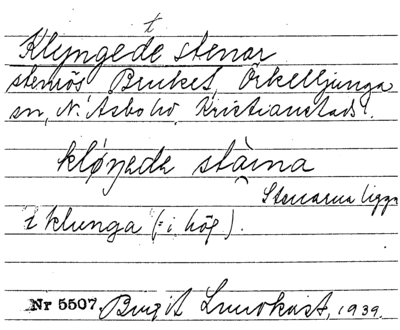 Klyngede stenar
t
stenrös Bruket, Örkelljunga
sn, N. Åsbo hd. Kristianstads l.
kløŋede stàina
Stenarna ligga
i klunga (: i hög).
Nr 5507. Birgit Lundkvist, 1939.